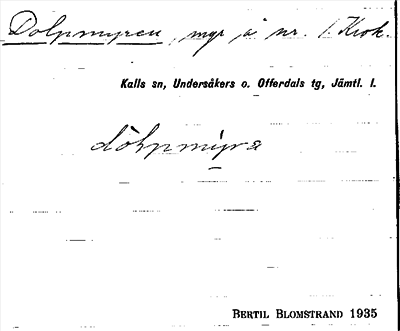 Dolpmyren, myr å nr. 1 Krok.
Kalls sn, Undersåkers o. Offerdals tg, Jämtl. l.
dòlpmỳra
BERTIL BLOMSTRAND 1935